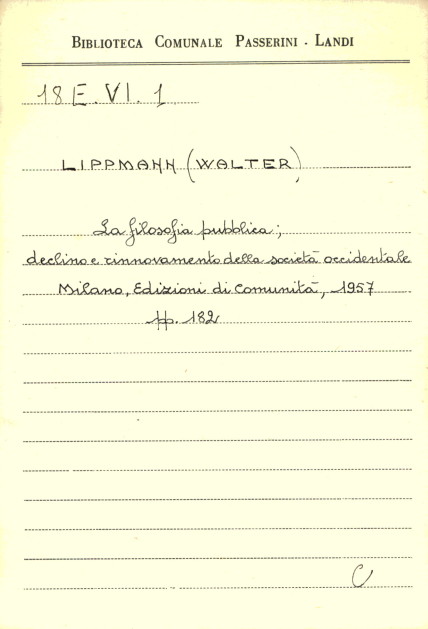 BIBLIOTECA COMUNALE PASSERINI - LANDI
18 E. VI. 1
LIPPMANN (WALTER)
La filosofia pubblica;
declino e rinnovamento della società occidentale
Milano, Edizioni di Comunità, 1957
pp. 182
C